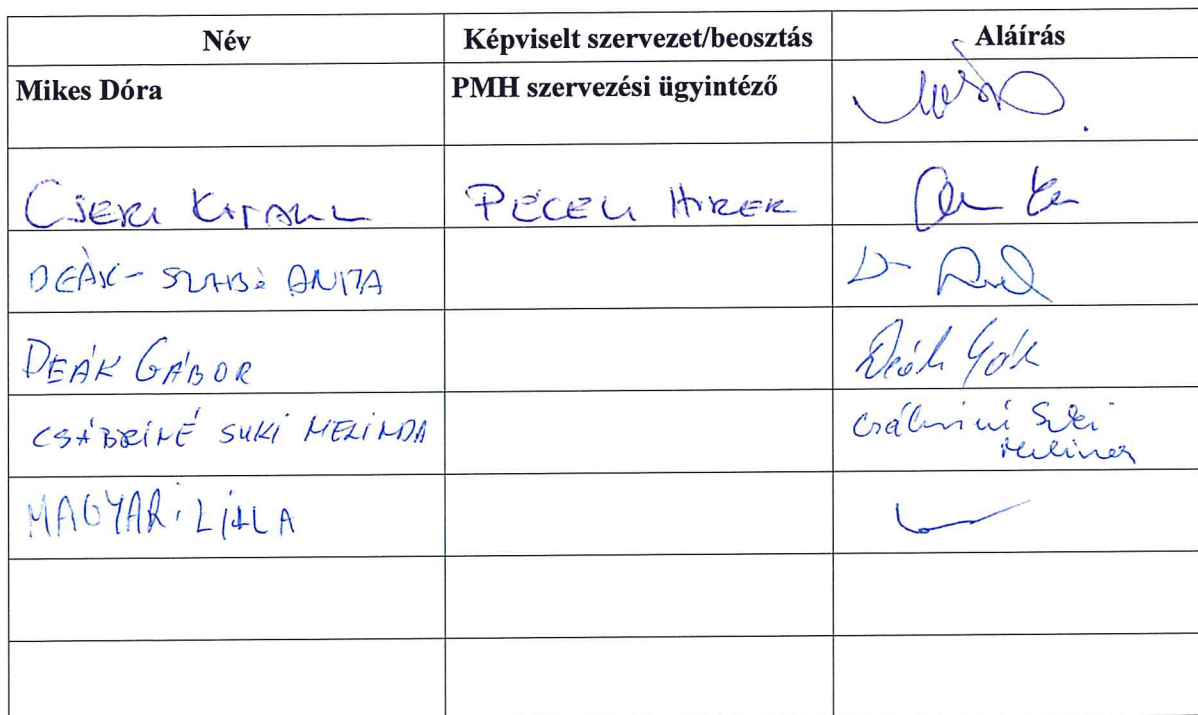 Név Képviselt szervezet/beosztás Aláírás
Mikes Dóra PMH szervezési ügyintéző
CSERI PÉCELI HÍREK
DEÁK-SZABÓ ANITA
DEÁK GÁBOR Deák Gábor
CSÁBRINÉ SUKI MELINDA Csábriné Suki
Melinda
MAGYARI LILLA